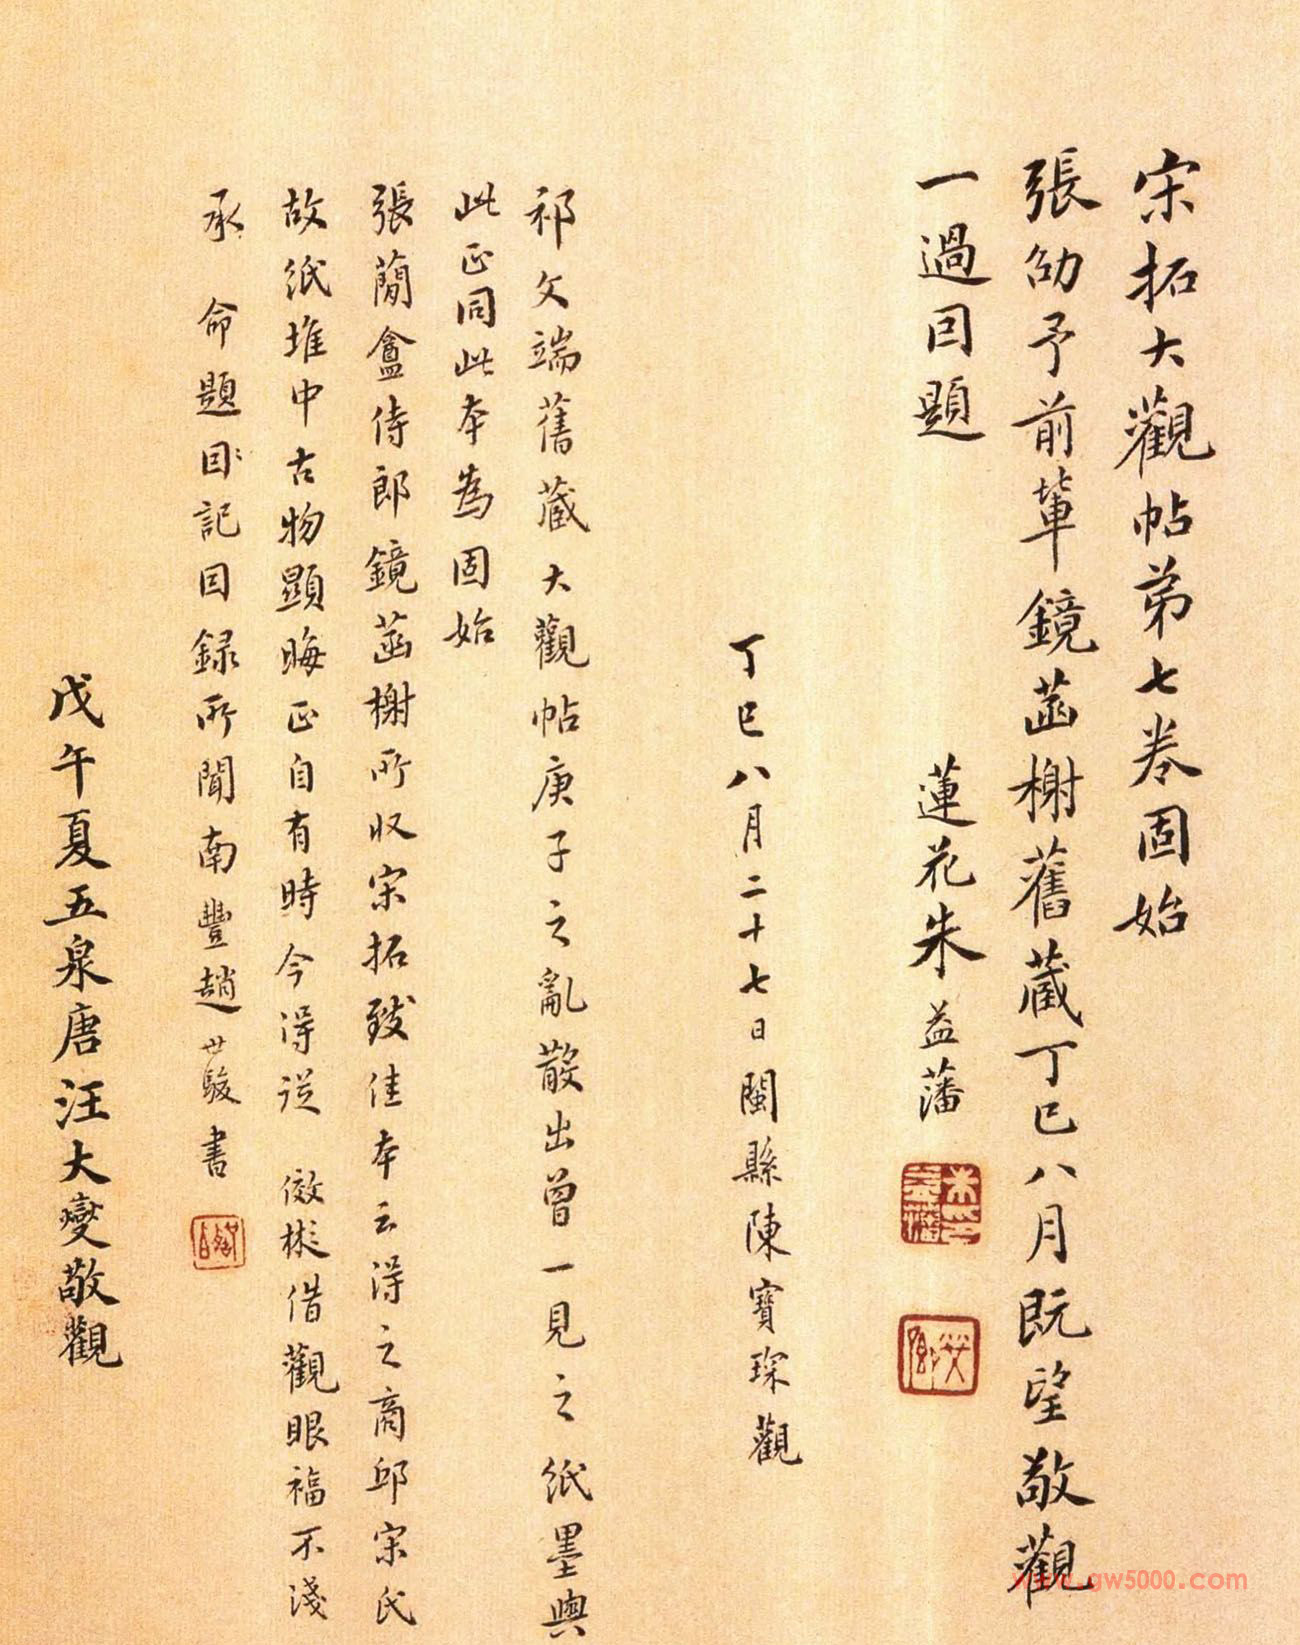 宋拓大觀帖弟七卷固始
張幼予前輩鏡菡榭舊藏丁巳八月既望敬觀
一過因題
蓮花朱益藩
丁巳八月二十七日閩縣陳寶琛觀
祁文端舊藏大觀帖庚子之亂散出曾一見之紙墨與
此正同此本為固始
張蘭盦侍郎鏡菡榭所收宋拓致佳本云得之商邱宋氏
故紙堆中古物顯晦正自有時今得從 儆彬借觀眼福不淺
承 命題因記因錄所聞南豐趙世駿書
戊午夏五泉唐汪大燮敬觀
www.gw5000.com